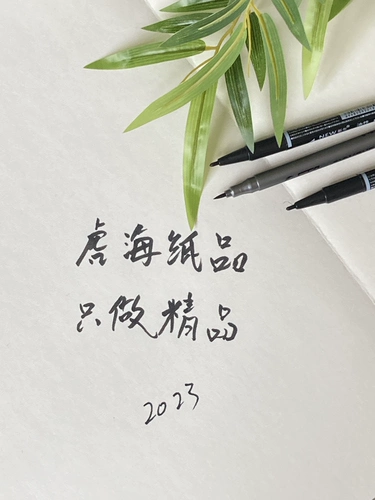 海纸品
只做精品
2023